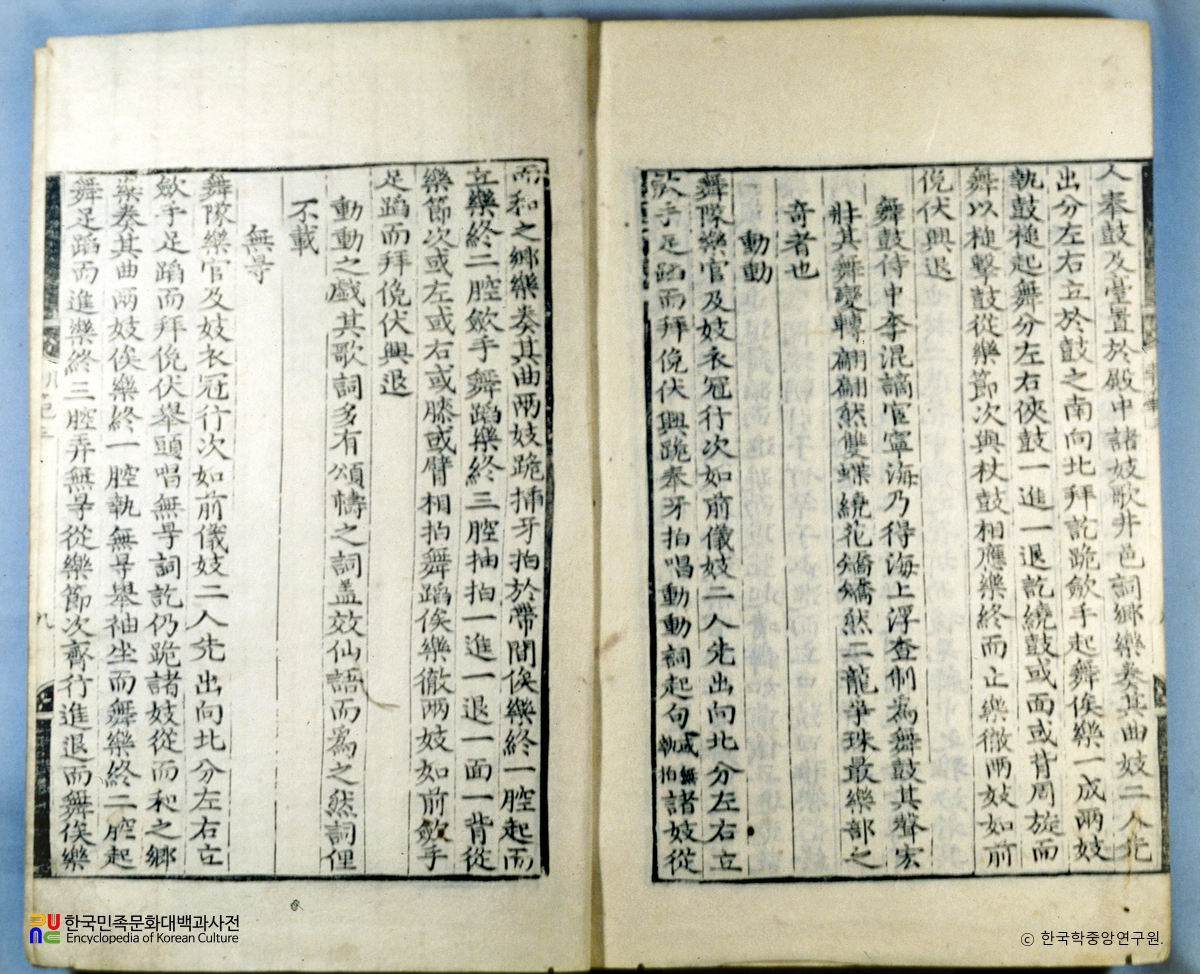 人奉鼓及臺置於殿中諸妓歌井邑詞鄕樂奏其曲妓二人先
出分左右立於鼓之南向北拜訖跪歛手起舞俟樂一成兩妓
執鼓槌起舞分左右俠鼓一進一退訖繞鼓或面或背周旋而
舞以槌擊鼓從樂節次與杖鼓相應樂終而止樂徹兩妓如前
俛伏興退
舞鼓侍中李混謫宦寧海乃得海上浮查制爲舞鼓其聲宏
壯其舞變轉翩翩然雙蝶繞花矯矯然二龍爭珠最樂部之
奇者也
動動
舞隊樂官及妓衣冠行次如前儀妓二人先出向北分左右立
歛手足蹈而拜俛伏興跪奉牙拍唱動動詞起句或無執拍諸妓從
而和之鄕樂奏其曲兩妓跪揷牙拍於帶間俟樂終一腔起而
立樂終二腔歛手舞蹈樂終三腔抽拍一進一退一面一背從
樂節次或左或右或膝或臂相拍舞蹈俟樂徹兩妓如前歛手
足蹈而拜俛伏興退
動動之戱其歌詞多有頌禱之詞盖效仙語而爲之然詞俚
不載
無㝵
舞隊樂官及妓衣冠行次如前儀妓二人先出向北分左右立
歛手足蹈而拜俛伏擧頭唱無㝵詞訖仍跪諸妓從而和之鄕
樂奏其曲兩妓俟樂終一腔執無㝵擧袖坐而舞樂終二腔起
舞足蹈而進樂終三腔弄無㝵從樂節次齊行進退而舞俟樂
九
한국민족문화대백과사전
Encyclopedia of Korean Culture
ⓒ 한국학중앙연구원.